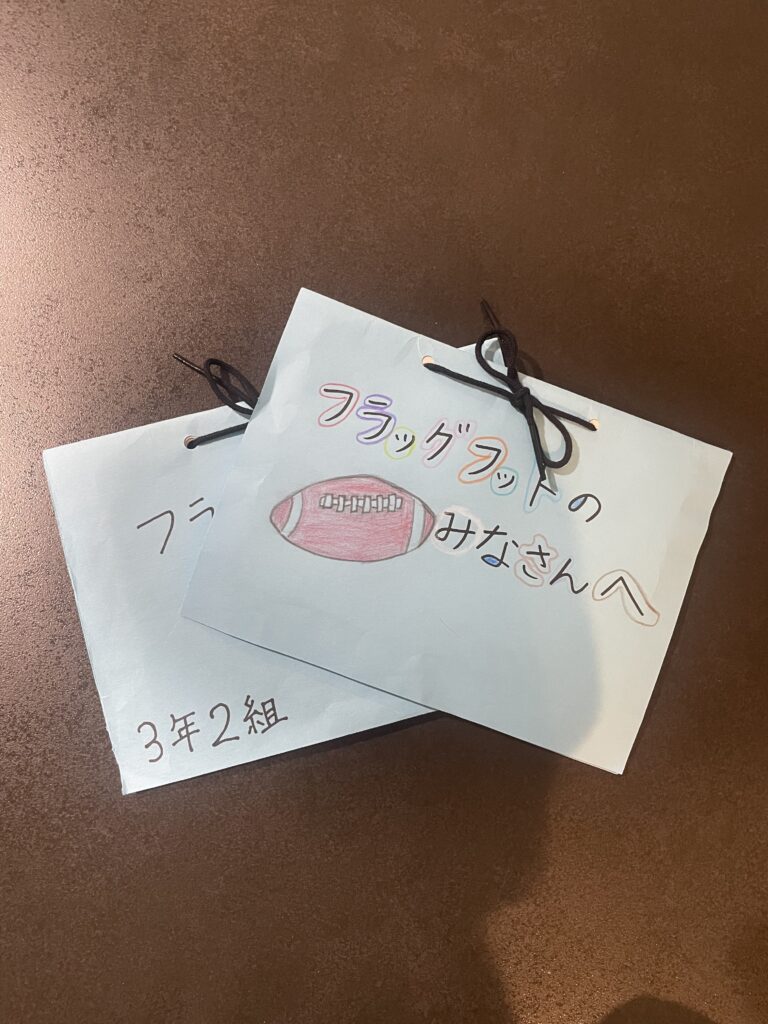 フラッグフットの
みなさんへ
フラ
3年2組